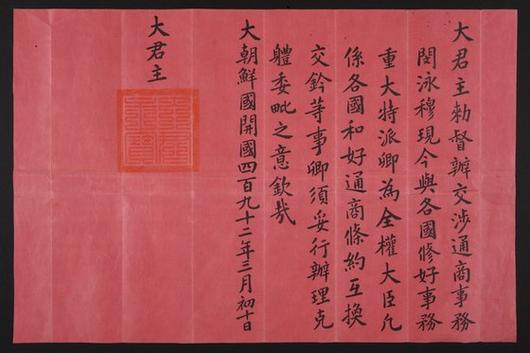 大君主勅督辦交涉通商事務
閔泳穆現今與各國修好事務
重大特派卿為全權大臣凡
係各國和好通商條約互換
交鈐等事卿須妥行辦理克
體委毗之意欽哉
大朝鮮國開國四百九十二年三月初十日
大君主